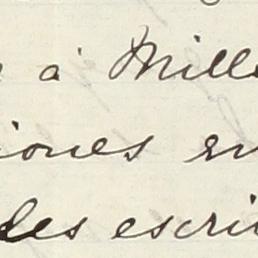 à Mille
iones en
les escri